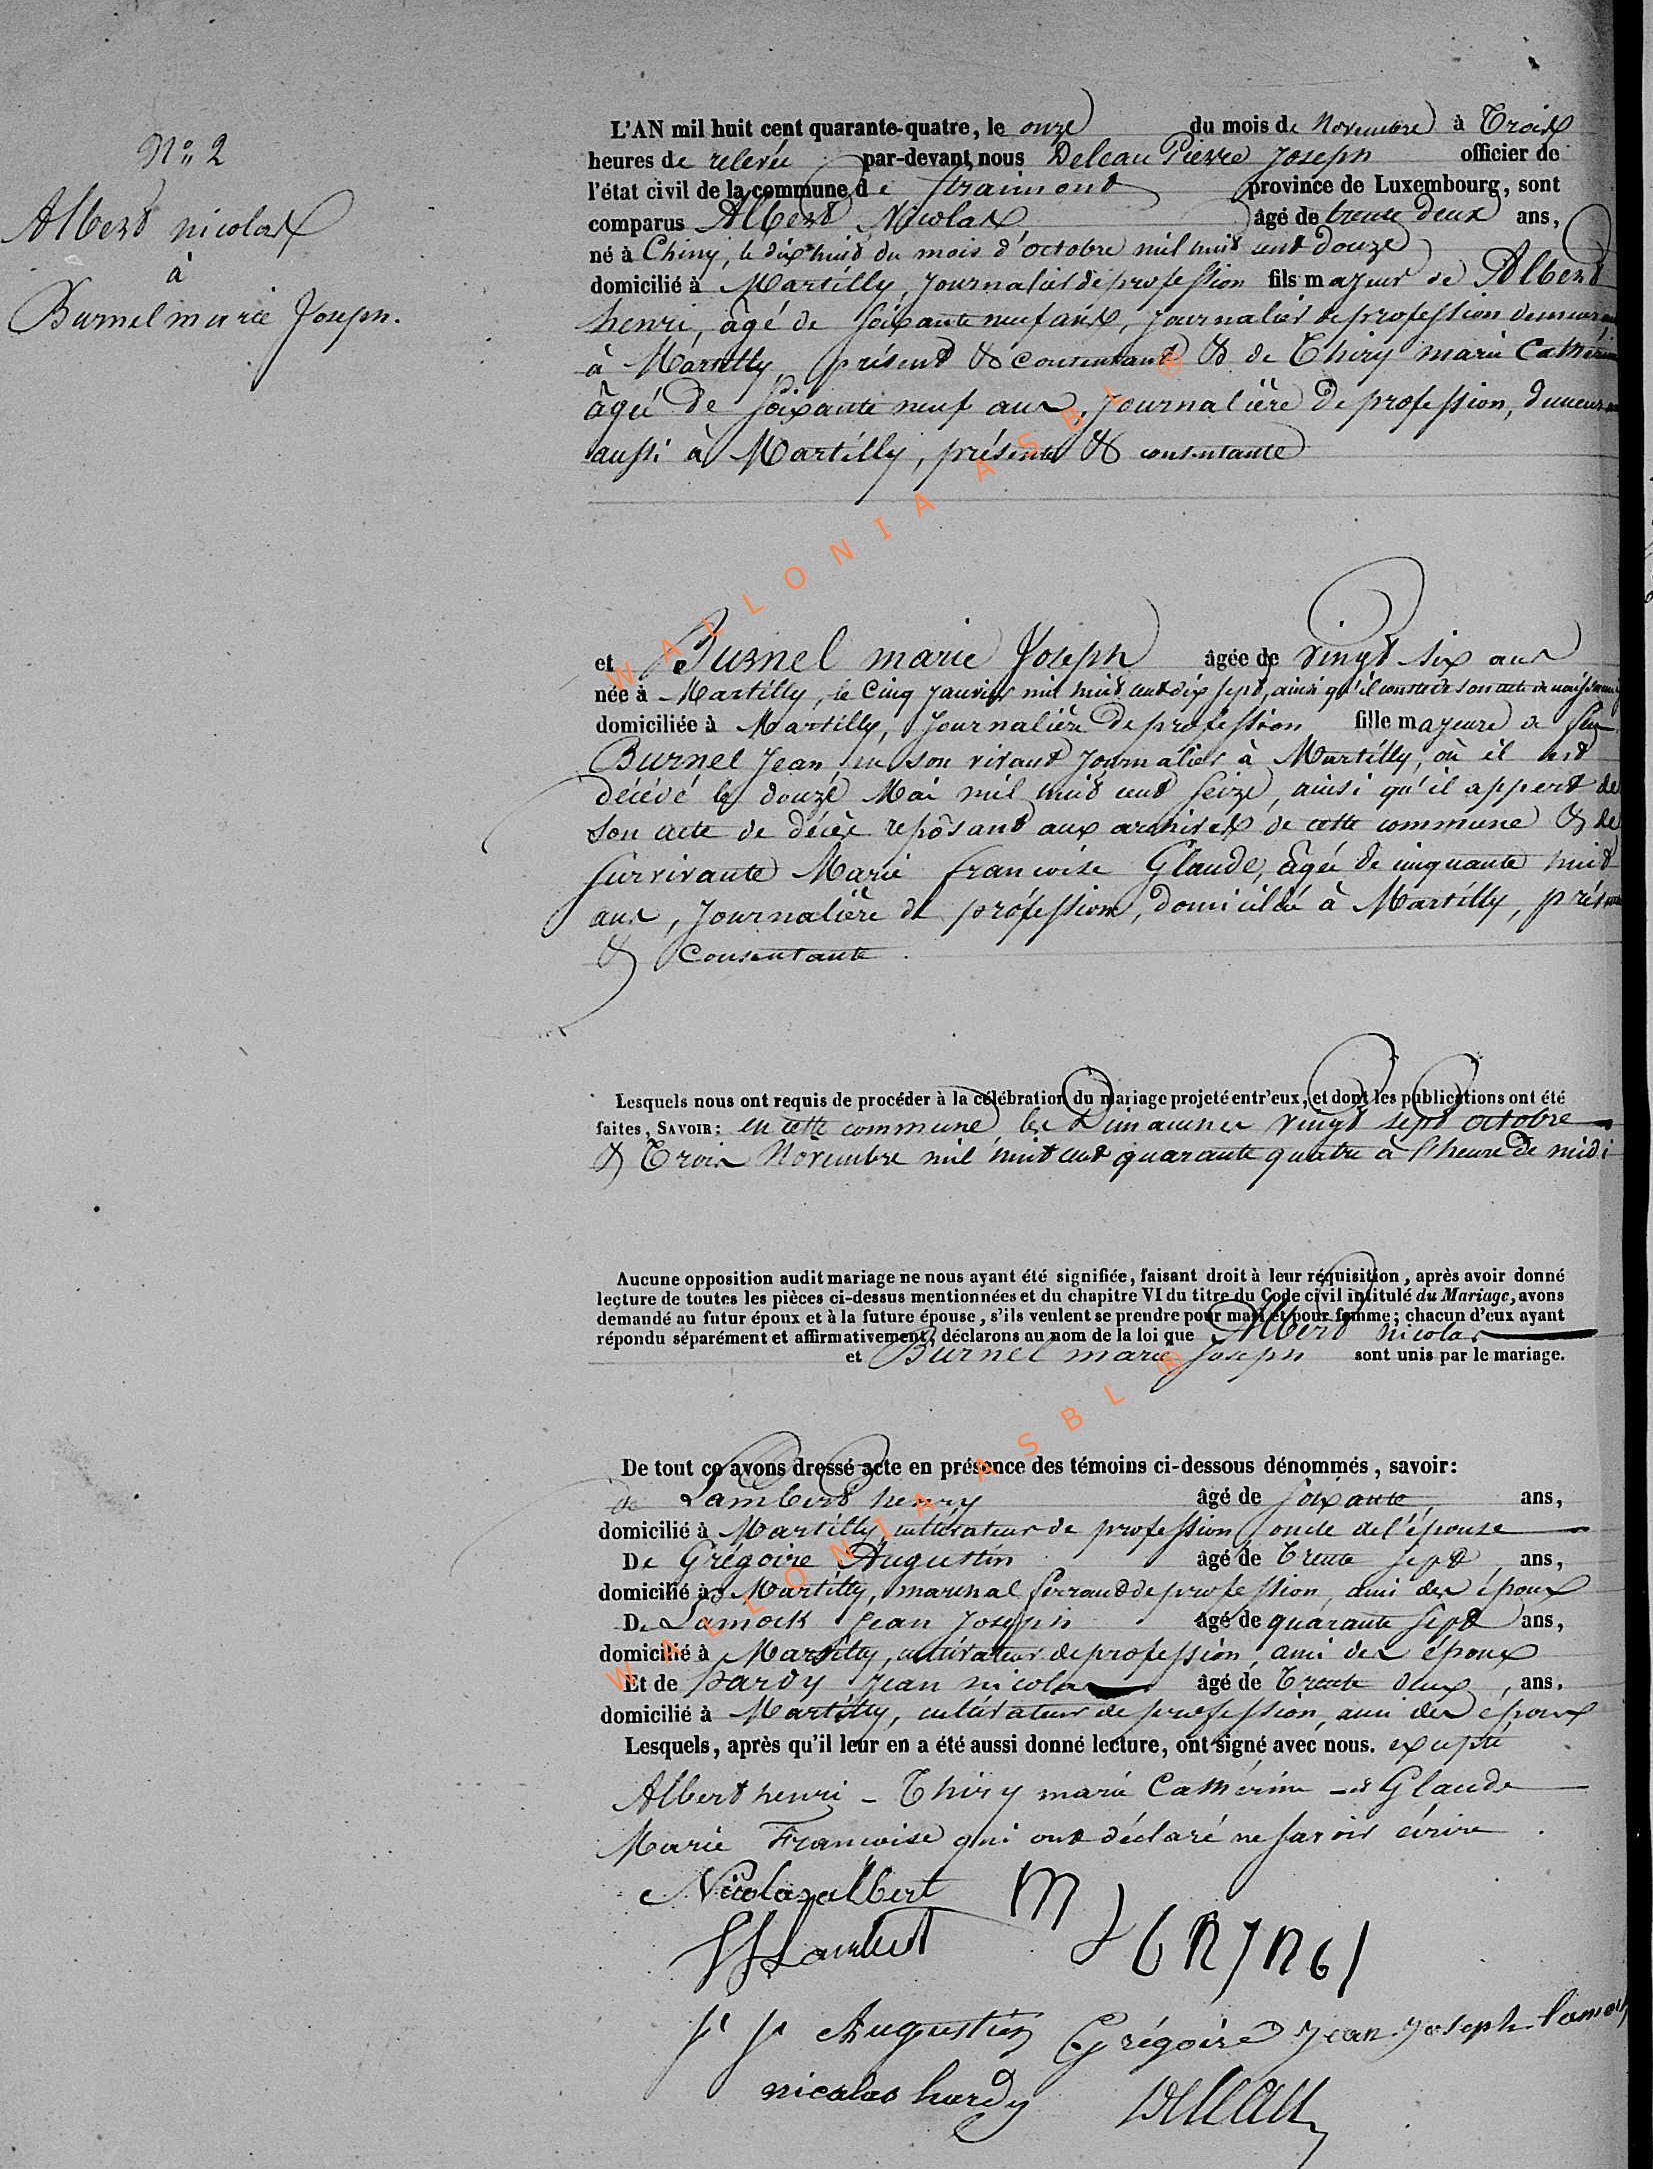 N° 2
Albert nicolas
à
Burnel marie Joseph.
L'AN mil huit cent quarante-quatre, le onze du mois de Novembre à Trois
heures de relevée par-devant nous Deleau Pierre Joseph officier de
l'état civil de la commune de Straimont province de Luxembourg, sont
comparus Albert Nicolas âgé de trente deux ans,
né à Chiny, le dix huit du mois d'octobre mil huit cent douze
domicilié à Martilly, Journalier de profession fils majeur de Albert
henri, âgé de soixante neuf ans, journalier de profession demeurant
à Martilly, présent & consentant & de Thiry marie Cathérine
âgée de soixante neuf ans, journalière de profession, demeurant
aussi à Martilly, présente & consentante
et Burnel marie Joseph âgée de vingt six ans
née à Martilly, le Cinq Janvier mil huit cent dix sept, ainsi qu'il conste de son acte de naissance
domiciliée à Martilly, Journalière de profession fille majeure de feu
Burnel Jean, en son vivant Journalier à Martilly, où il est
décédé le douze Mai mil huit cent seize, ainsi qu'il appert de
son acte de décès repôsant aux archives de cette commune & de
survivante Marie françoise Glaude, âgée de cinquante huit
ans, Journalière de proféssion, domiciliée à Martilly, présente
& Consentante.
Lesquels nous ont requis de procéder à la célébration du mariage projeté entr'eux, et dont les publications ont été
faites, SAVOIR: en cette commune, les Dimanches vingt sept octobre
& Trois Novembre mil huit cent quarante quatre à l'heure de midi
Aucune opposition audit mariage ne nous ayant été signifiée, faisant droit à leur réquisition, après avoir donné
lecture de toutes les pièces ci-dessus mentionnées et du chapitre VI du titre du Code civil intitulé du Mariage, avons
demandé au futur époux et à la future épouse, s'ils veulent se prendre pour mari et pour femme; chacun d'eux ayant
répondu séparément et affirmativement, déclarons au nom de la loi que Albert Nicolas
et Burnel marie Joseph sont unis par le mariage.
De tout ce avons dressé acte en présence des témoins ci-dessous dénommés, savoir:
de Lambert henry âgé de soixante ans,
domicilié à Martilly, cultivateur de profession, oncle de l'épouse
De Grégoire Augustin âgé de Trente sept ans,
domicilié à Martilly, maréchal ferrand de profession, ami des époux
De Lamock Jean Joseph âgé de quarante sept ans,
domicilié à Martilly, cultivateur de profession, ami des époux
Et de hardy Jean nicolas âgé de Trente deux, ans.
domicilié à Martilly, cultivateur de profession, ami des époux
Lesquels, après qu'il leur en a été aussi donné lecture, ont signé avec nous. excepté
Albert henri - Thiry marie Cathérine - et Glaude
Marie Françoise qui ont déclaré ne savoir écrire.
Nicolas albert
Lambert
Augustin Grégoire Jean Joseph Lamock
nicolas hardy Deleau
WALLONIA ASBL ®
WALLONIA ASBL ®